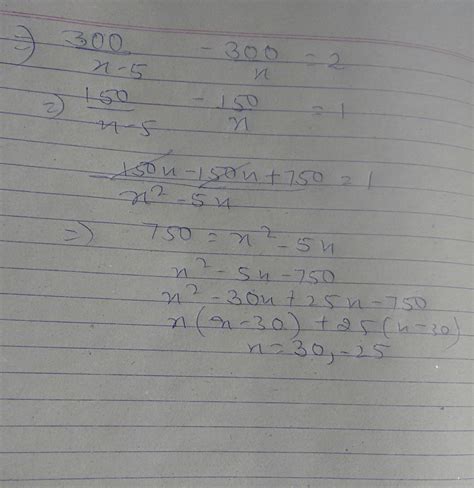 ⇒ 300/x-5 - 300/x = 2
⇒ 150/x-5 - 150/x = 1
150x - 150x + 750/x² - 5x = 1
⇒ 750 = x² - 5x
x² - 5x - 750
x² - 30x + 25x - 750
x(x-30) + 25(x-30)
x = 30, -25